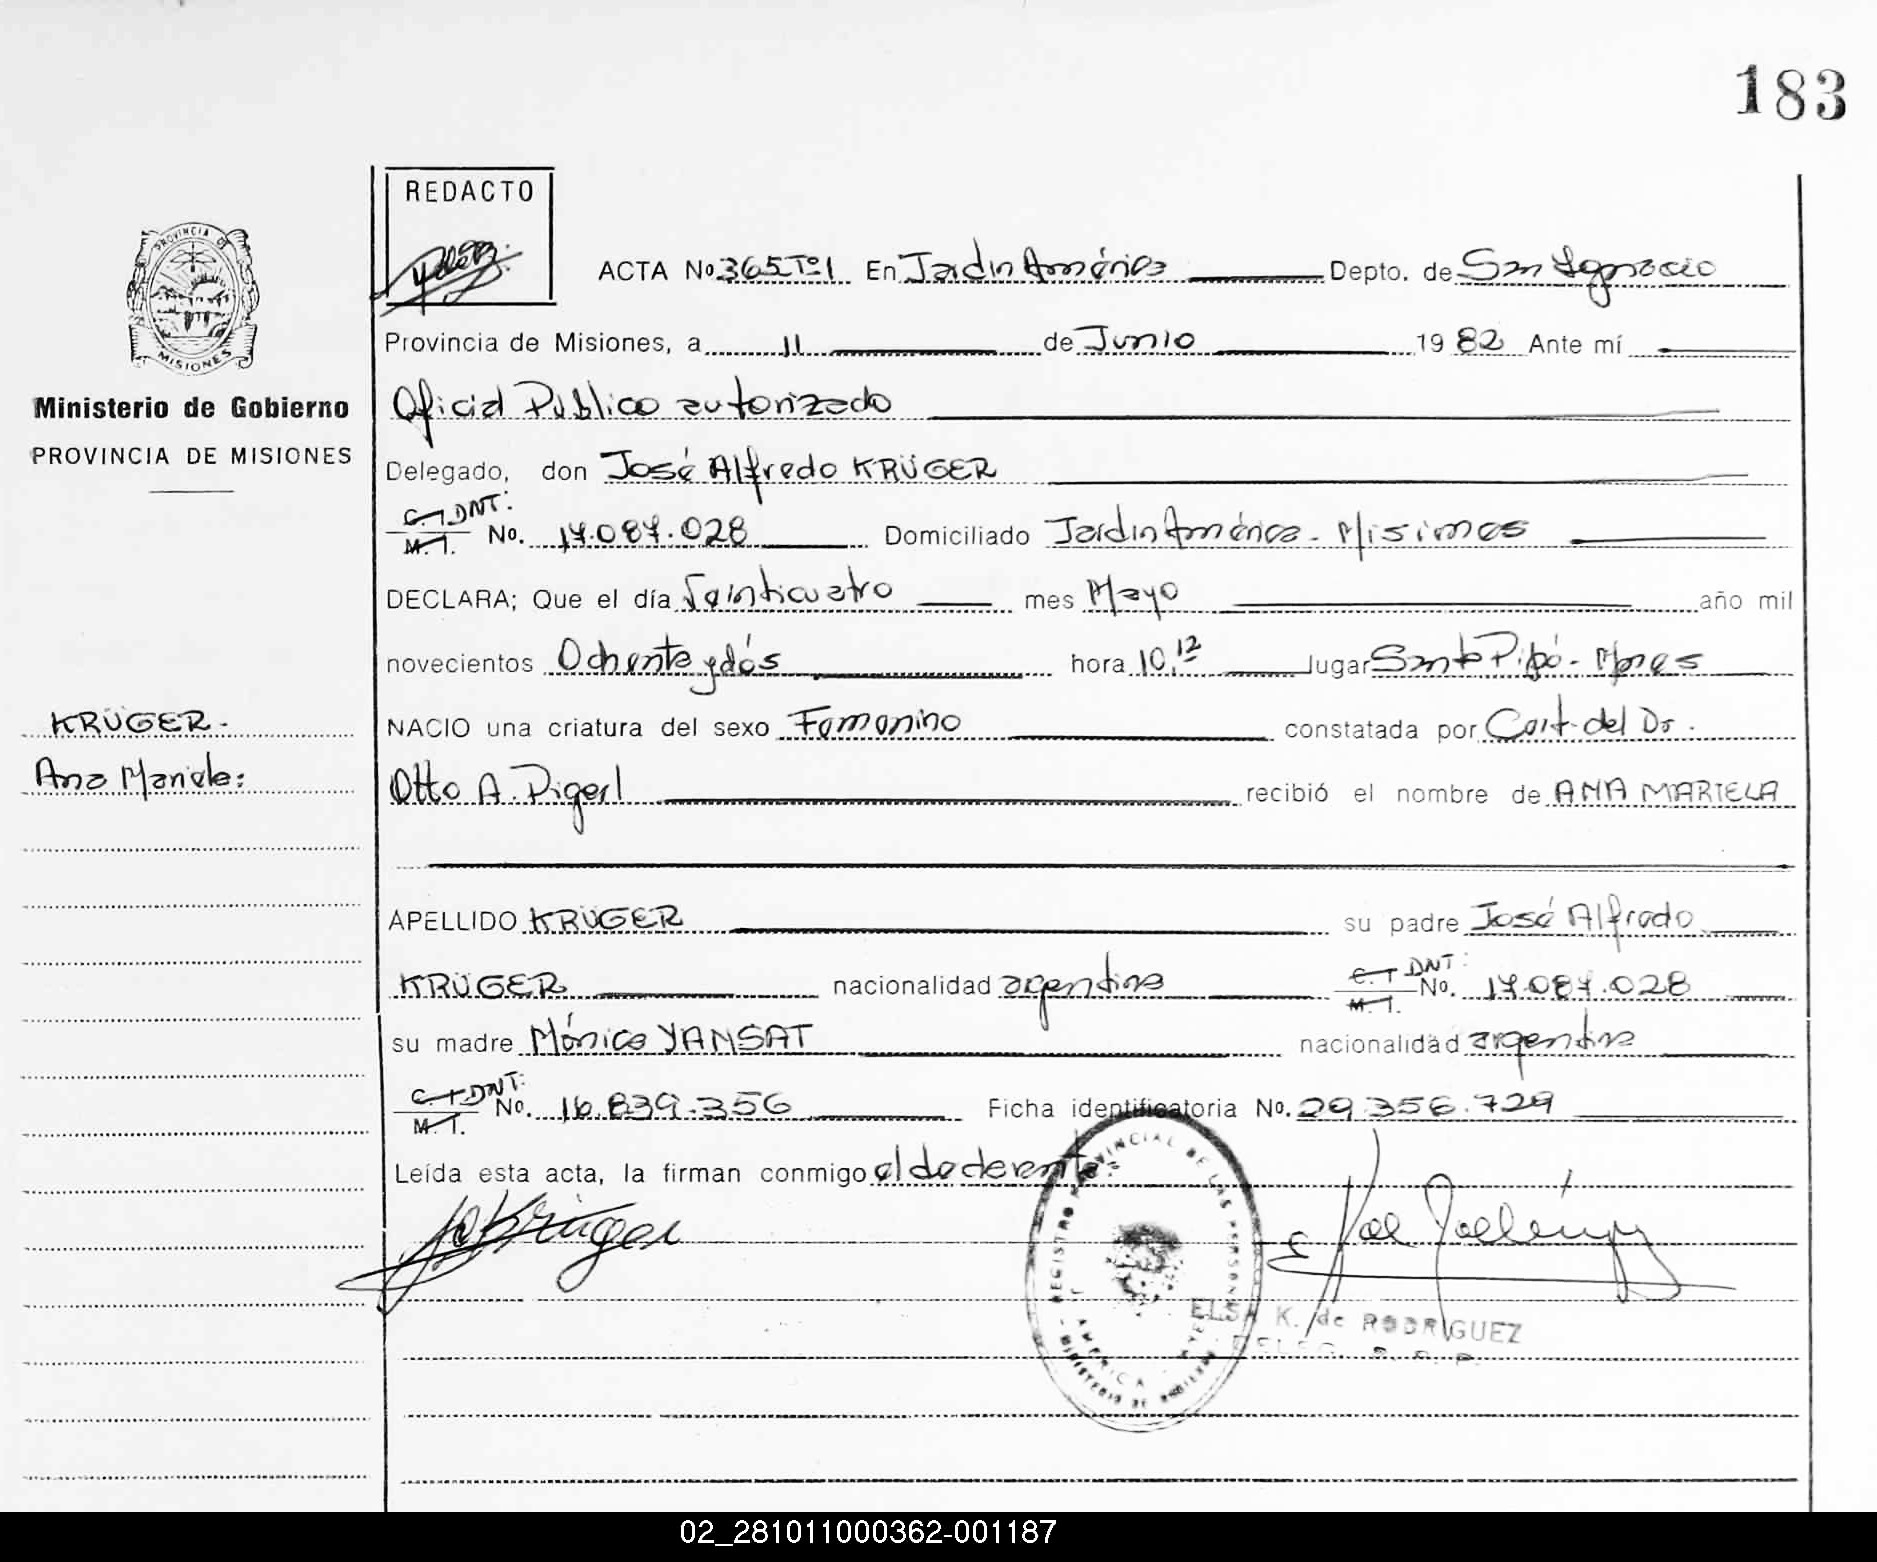 183
REDACTO
PROVINCIA DE
MISIONES
ACTA No 365 Tº1 En Jardin América Depto. de San Ignacio
Provincia de Misiones, a 11 de Junio 1982 Ante mí
Ministerio de Gobierno
PROVINCIA DE MISIONES
Oficial Publico autorizado
Delegado, don José Alfredo KRÜGER
C. I DNI:
M. I. No. 17.087.028 Domiciliado Jardin América - Misiones
DECLARA; Que el día Veinticuatro mes Mayo año mil
novecientos Ochenta y dós hora 10,12 lugar Santo Pipó - Mnes
KRÜGER.
NACIO una criatura del sexo Femenino constatada por Cert. del Dr.
Ana Mariela:
Otto A. Pigerl recibió el nombre de ANA MARIELA
APELLIDO KRÜGER su padre José Alfredo
KRÜGER nacionalidad argentina C. I DNI: M. I. No. 17.087.028
su madre Mónica YANSAT nacionalidad argentina
C. I DNI: M. I. No. 16.839.356 Ficha identificatoria No. 29.356.729
Leída esta acta, la firman conmigo el declarante:
REGISTRO PROVINCIAL DE LAS PERSONAS
AMERICA
MINISTERIO DE GOBIERNO
ELSA K. de RODRIGUEZ
02_281011000362-001187